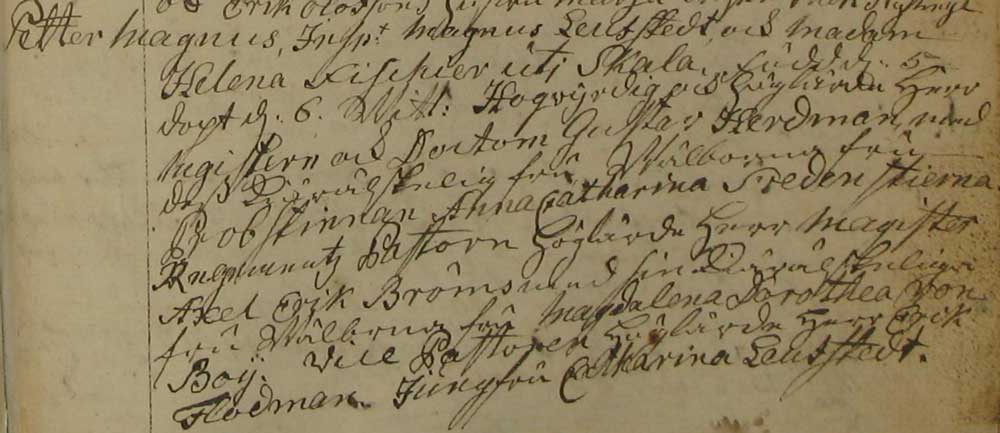 Erik Olossons Hustru
Petter Magnus, Insp:t Magnus Leufstedt, och Madam
Helena Fischier uti Skala, född d: 5
döpt d. 6. Witt: Högvyrdig och Höglärde Herr
Magistern och Doctorn Gustaf Herdman med
dess Käraälskelig fru Wälborna fru
Probstinnan Anna Catharina Fredenstierna
Regements Pastorn Höglärde Herr Magister
Axel Erik Broms med sin Käraälskeliga
fru Wälborna fru Magdalena Dorothea von
Boij. Vice Pastoren Höglärde Herr Erik
Flodman. Jungfru Catharina Leufstedt.